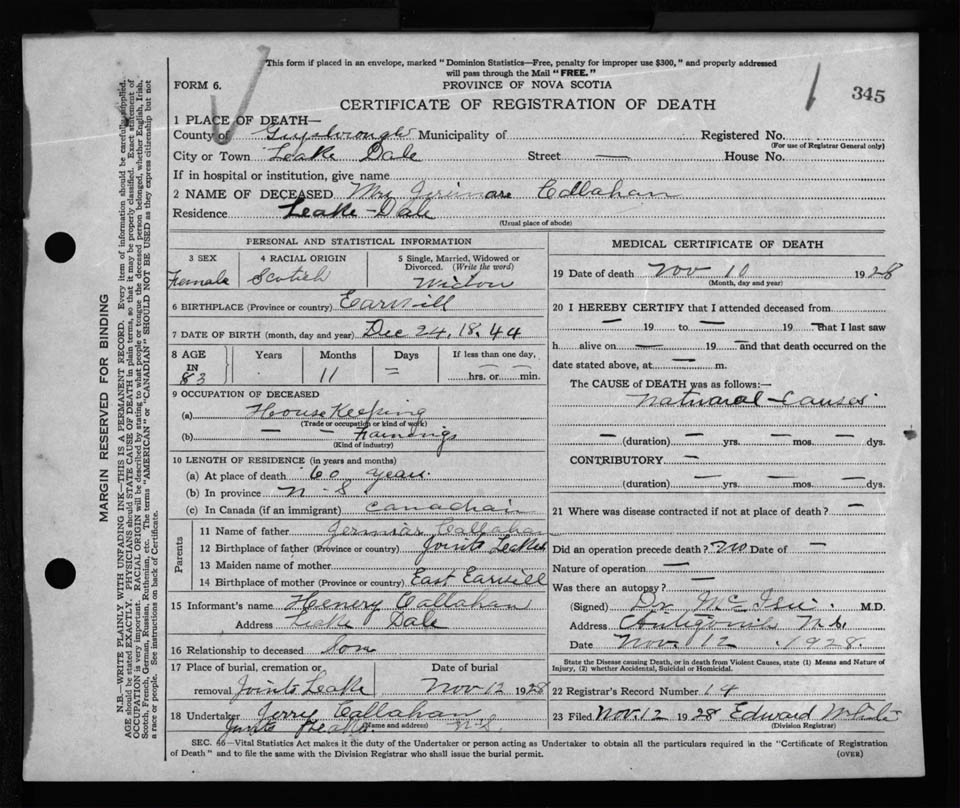 This form if placed in an envelope, marked "Dominion Statistics—Free, penalty for improper use $300," and properly addressed
will pass through the Mail "FREE."
FORM 6.
PROVINCE OF NOVA SCOTIA
1 345
CERTIFICATE OF REGISTRATION OF DEATH
1 PLACE OF DEATH—
County of Guysbrough Municipality of Registered No.
(For use of Registrar General only)
City or Town Leake Dale Street — House No.
If in hospital or institution, give name
2 NAME OF DECEASED Mrs Callahan
Residence Leake-Dale
(Usual place of abode)
PERSONAL AND STATISTICAL INFORMATION
3 SEX 4 RACIAL ORIGIN 5 Single, Married, Widowed or Divorced. (Write the word)
Female Scotich Widow
6 BIRTHPLACE (Province or country) Earvill
7 DATE OF BIRTH (month, day and year) Dec 24, 1844
8 AGE IN Years Months Days If less than one day,
83 11 = hrs. or min.
9 OCCUPATION OF DECEASED
(a) House Keeping
(Trade or occupation or kind of work)
(b) — —
(Kind of industry)
10 LENGTH OF RESIDENCE (in years and months)
(a) At place of death 60 years.
(b) In province N-S.
(c) In Canada (if an immigrant) Canadian
Parents
11 Name of father Callahan
12 Birthplace of father (Province or country) Joints Leake
13 Maiden name of mother
14 Birthplace of mother (Province or country) East Earvill
15 Informant's name Henery Callahan
Address Leake Dale
16 Relationship to deceased Son
17 Place of burial, cremation or Date of burial
removal Joints Leake Nov 12 1928
18 Undertaker Jerry Callahan
Joints Leake (Name and address) N-S.
MEDICAL CERTIFICATE OF DEATH
19 Date of death Nov 10 1928
(Month, day and year)
20 I HEREBY CERTIFY that I attended deceased from
— 19 to — 19 that I last saw
h alive on — 19 — and that death occurred on the
date stated above, at — m.
The CAUSE of DEATH was as follows:—
Natuaral-Causes.
— (duration) — yrs. — mos. — dys.
CONTRIBUTORY —
— (duration) — yrs. — mos. — dys.
21 Where was disease contracted if not at place of death? —
Did an operation precede death? No. Date of —
Nature of operation —
Was there an autopsy? —
(Signed) Dr. M.D.
Address Antigonish N.S.
Date Nov. 12 1928.
State the Disease causing Death, or in death from Violent Causes, state (1) Means and Nature of
Injury, (2) whether Accidental, Suicidal or Homicidal.
22 Registrar's Record Number 14
23 Filed Nov. 12 1928 Edward
(Division Registrar)
SEC. 46—Vital Statistics Act makes it the duty of the Undertaker or person acting as Undertaker to obtain all the particulars required in the "Certificate of Registration
of Death" and to file the same with the Division Registrar who shall issue the burial permit. (OVER)
MARGIN RESERVED FOR BINDING
N.B.—WRITE PLAINLY WITH UNFADING INK—THIS IS A PERMANENT RECORD. Every item of information should be carefully supplied.
AGE should be stated EXACTLY. PHYSICIANS should STATE CAUSE OF DEATH in plain terms, so that it may be properly classified. Exact statement of
OCCUPATION is very important. RACIAL ORIGIN will be described by stating to what people or tongue the deceased person belonged, whether English, Irish,
Scotch, French, German, Russian, Ruthenian, etc. The terms "AMERICAN" or "CANADIAN" SHOULD NOT BE USED as they express citizenship but not
a race or people. See instructions on back of Certificate.